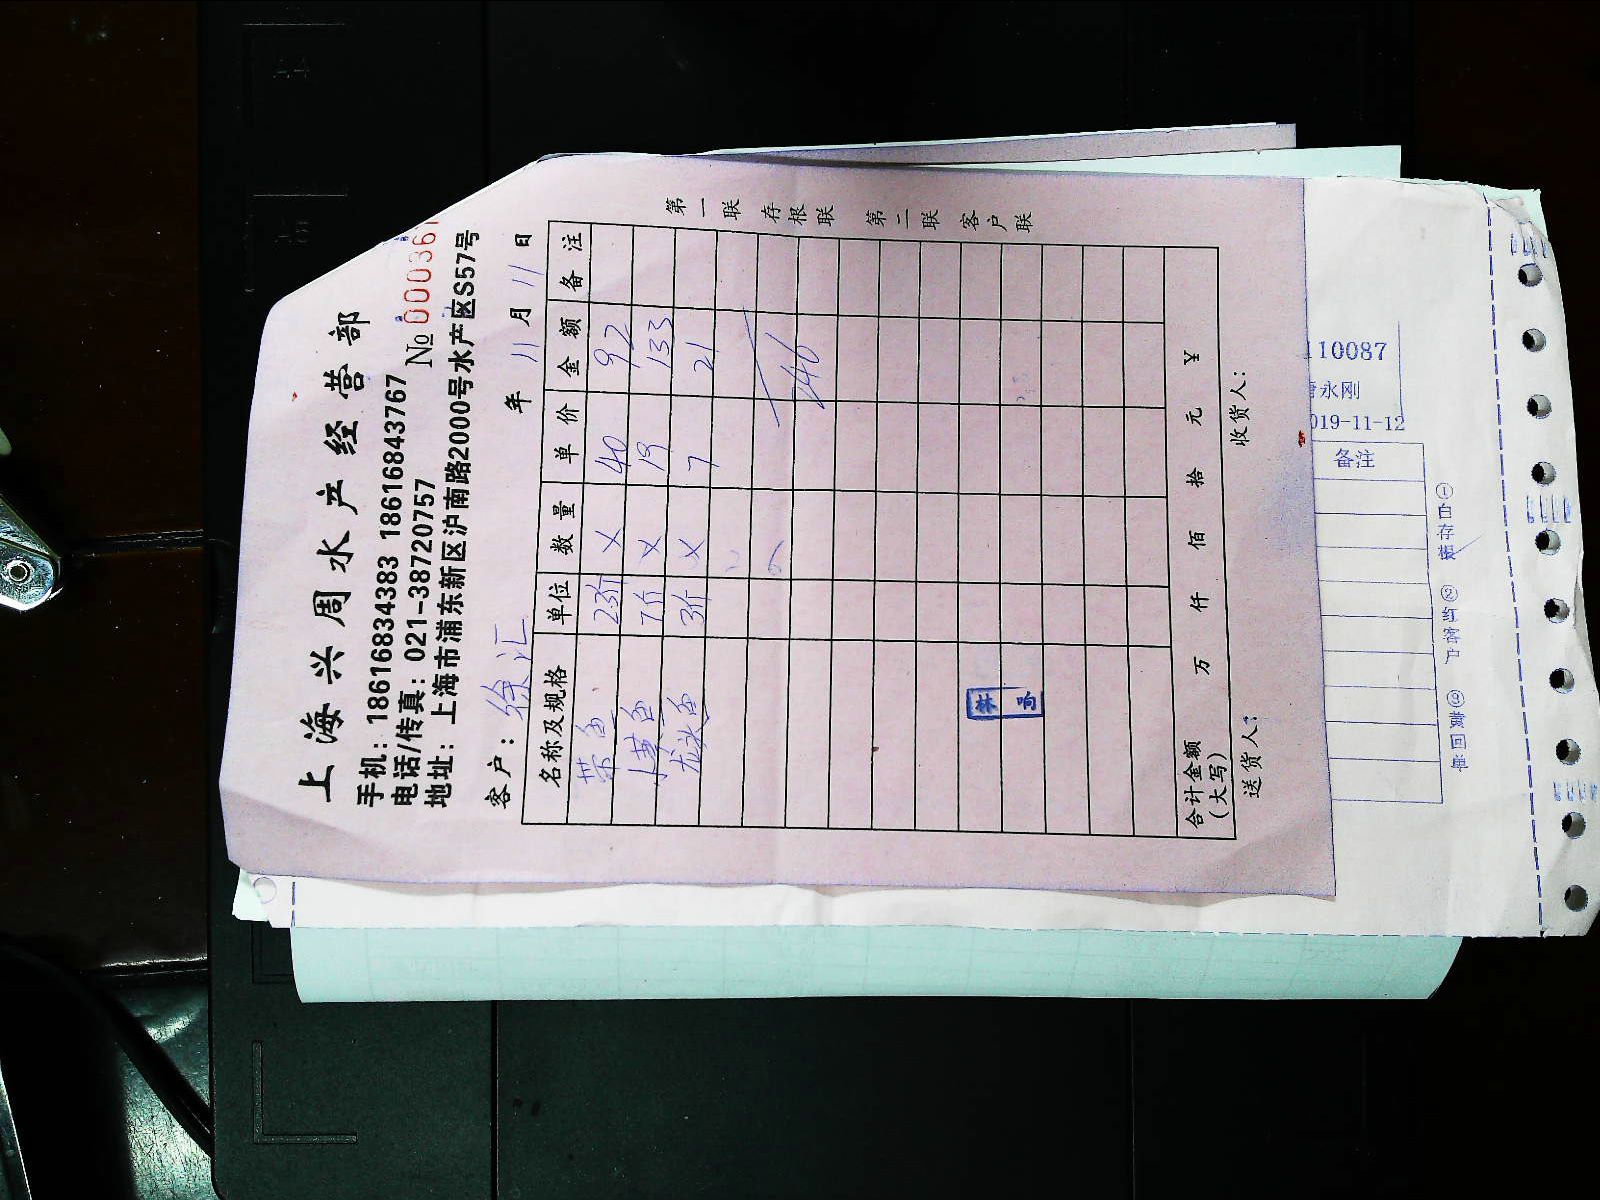 上海兴周水产经营部
手机：18616834383 18616843767
电话/传真：021-38720757 № 000361
地址：上海市浦东新区沪南路2000号水产区S57号
客户：徐汇 年 11 月 11 日
名称及规格 单位 数量 单价 金额 备注
鱼 23斤 × 40 92
小黄鱼 7斤 × 19 133
龙头鱼 3斤 × 7 21
246
合计金额（大写） 万 仟 佰 拾 元 ¥
送货人： 收货人：
第一联 存根联 第二联 客户联
110087
永刚
019-11-12
备注
①白存根 ②红客户 ③黄回单